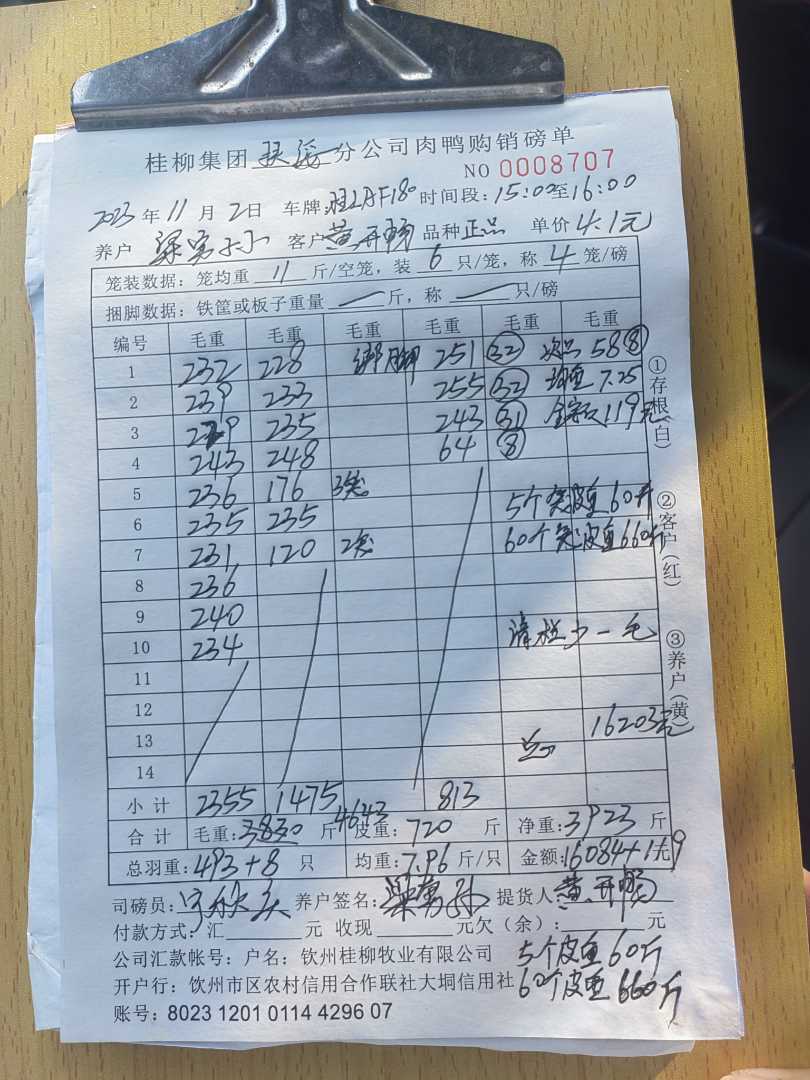 桂柳集团 扶绥 分公司肉鸭购销磅单
NO 0008707
2023 年 11 月 2日 车牌: 桂LAF180 时间段: 15:00至16:00
养户 梁勇 客户 黄开畅 品种 正品 单价 4.1元
笼装数据: 笼均重 11 斤/空笼, 装 6 只/笼, 称 4 笼/磅
捆脚数据: 铁筐或板子重量 — 斤, 称 — 只/磅
编号 毛重 毛重 毛重 毛重 毛重 毛重
1 232 228 绑脚 251 32 次品 58 8
2 239 233 255 32 均重 7.25
3 229 235 243 31 金额 119元
4 243 248 64 8
5 236 176 3笼 5个 皮重 60斤
6 235 235
7 231 120 2笼 60个 皮重 660斤
8 236
9 240
10 234 少一毛
11
12
13 16203元
14
小计 2355 1475 813
合计 毛重: 3830 斤 4643 皮重: 720 斤 净重: 3923 斤
总羽重: 493+8 只 均重: 7.96 斤/只 金额: 16084+119元
司磅员: 养户签名: 梁勇 提货人 黄开畅
付款方式: 汇 元 收现 元欠(余): 元
公司汇款帐号: 户名: 钦州桂柳牧业有限公司 5个皮重 60斤
开户行: 钦州市区农村信用合作联社大垌信用社 60个皮重 660斤
账号: 8023 1201 0114 4296 07
①存根(白)
②客户(红)
③养户(黄)